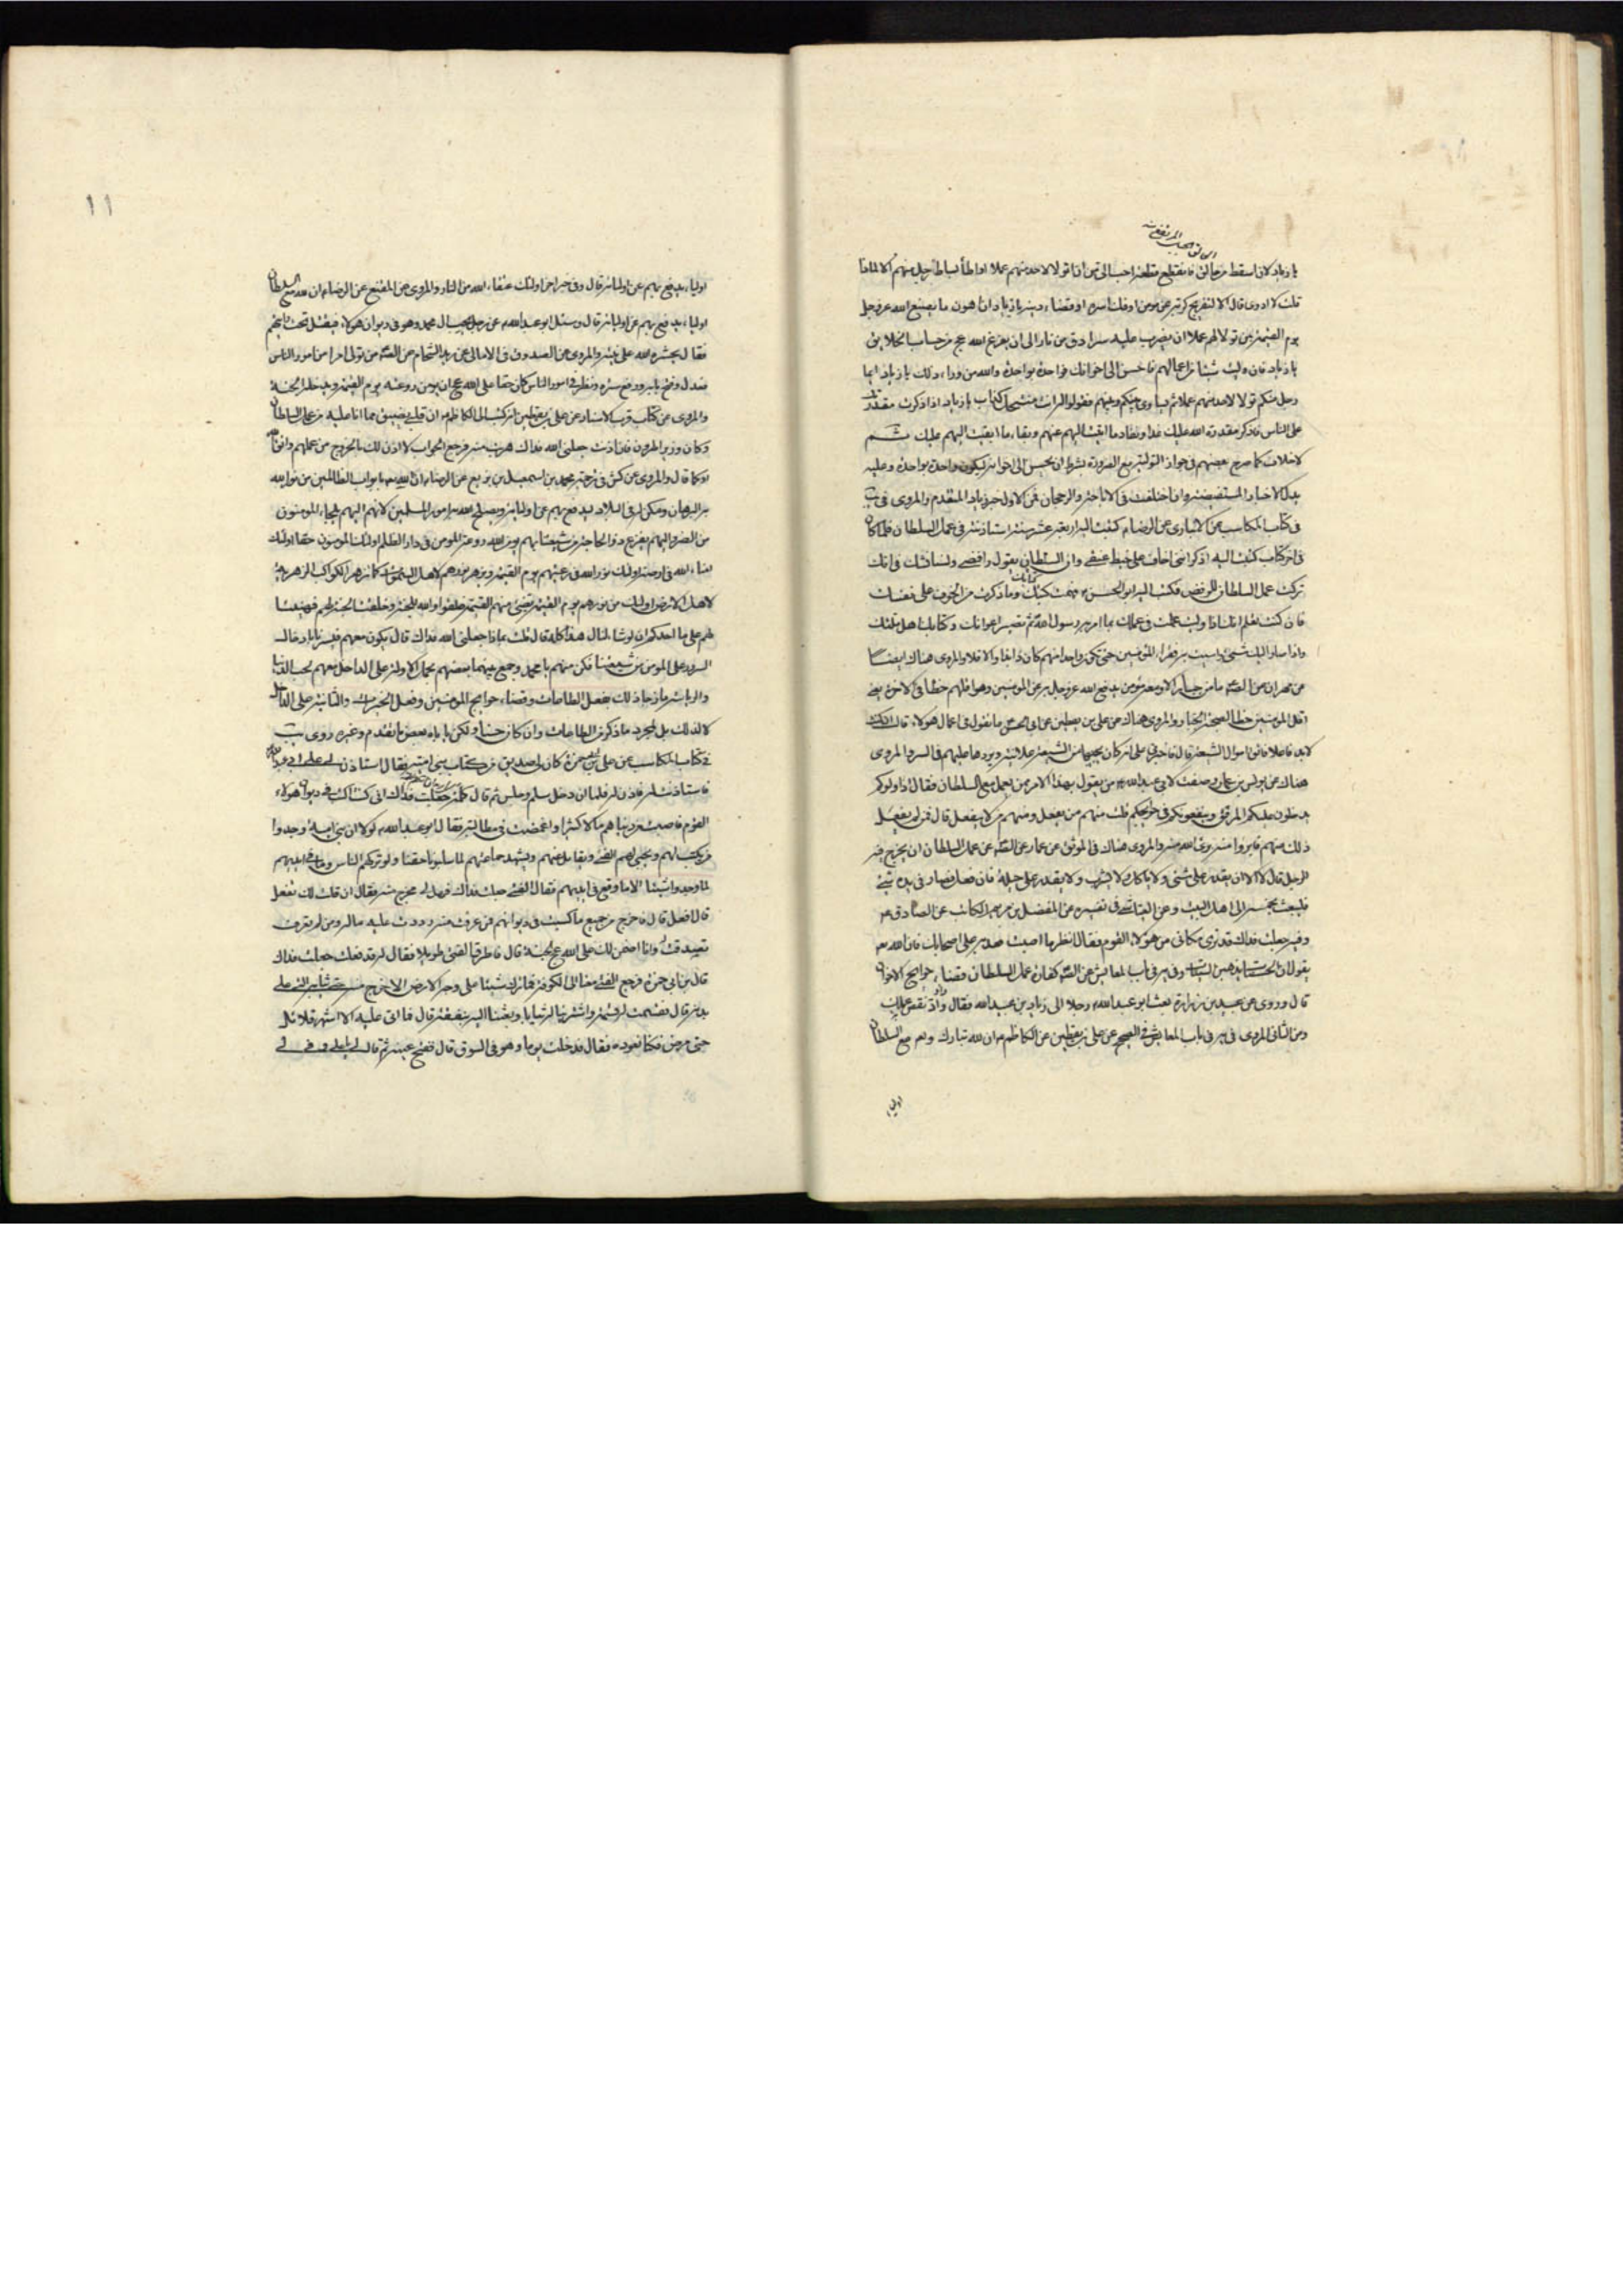 يا زياد لان اسقط من حالق فاتقطع قطعة احب الى من ان اتولى لاحد منهم عملا او اطأ بساط رجل منهم الا لماذا
قلت لا ادرى قال الا لتفريج كربة عن مومن او فك اسره او قضاء دينه يا زياد ان اهون ما يصنع الله عز وجل
يوم القيمة بمن تولى لهم عملا ان يضرب عليه سرادق من نار الى ان يفرغ الله عج من حساب الخلايق
يا زياد فان وليت شيئا من اعمالهم فاحسن الى اخوانك فواحدة بواحدة والله من وراء ذلك يا زياد ايما
رجل منكم تولى لاحد منهم عملا ثم ساوى بينكم وبينهم فقولوا له انت منتحل كذاب يا زياد اذا ذكرت مقدرتك
على الناس فاذكر مقدرة الله عليك غدا ونفاد ما اتيت اليهم عنهم وبقاء ما ابقيت اليهم عليك ثم
لا خلاف كما صرح بعضهم فى جواز التولية مع الضرورة بشرط ان يحسن الى اخوانه ليكون واحدة بواحدة وعليه
يدل الاخبار المستفيضة وان اختلفت فى الاباحة والرجحان فمن الاول خبر زياد المتقدم والمروى فى يب
فى كتاب المكاسب عن الانبارى عن الرضاء كتبت اليه اربعة عشر سنة استاذنه فى عمل السلطان فلما كان
فى اخر كتاب كتبت اليه اذكر انى اخاف على خيط عنقى وان السلطان يقول رافضى ولسنا نشك فى انك
تركت عمل السلطان للرفض فكتب اليه ابو الحسن ع فهمت كتبك وما ذكرت من الخوف على نفسك
فان كنت تعلم انك اذا وليت عملت فى عملك بما امر به رسول الله ثم تصير اعوانك وكتابك اهل ملتك
واذا صار اليك شئ واسيت به فقراء المؤمنين حتى تكون واحدا منهم كان ذا بذا والا فلا والمروى هناك ايضا
عن مهران عن الصه ما من جبار الا ومعه مؤمن يدفع الله عز وجل به عن المومنين وهو اقلهم حظا فى الاخرة يعنى
اقل المومنين حظا لصحبة الجبار والمروى هناك عن على بن يقطين عن ابى الحسن ما تقول فى اعمال هولاء قال ان كنت
لابد فاعلا فاتق اموال الشيعة قال فاخبرنى على انه كان يجبيها من الشيعة علانية ويردها عليهم فى السر والمروى
هناك عن يونس بن عمار وصفت لابى عبدالله ع من يقول بهذا الامر ممن يعمل مع السلطان فقال اذا ولوكم
يدخلون عليكم المرفق وينفعونكم فى حوائجكم قلت منهم من يفعل ومنهم من لا يفعل قال فمن لم يفعل
ذلك منهم فابروا منه برئ الله منه والمروى هناك فى الموثق عن عمار عن الصه عن عمل السلطان ان يخرج فيه
الرجل قال لا الا ان لا يقدر على شئ ولا ياكل ولا يشرب ولا يقدر على حيلة فان فعل فصار فى يده شئ
فليبعث بخمسه الى اهل البيت وعن العياشى فى تفسيره عن المفضل بن مريم الكاتب عن الصادق ع
وفيه جعلت فداك قد ترى مكانى من هؤلاء القوم فقال انظر ما اصبت فعد به على اصحابك فان الله
يقول ان الحسنات يذهبن السيئات وفى يه فى باب المعايش عن الصه كفارة عمل السلطان قضاء حوايج الاخوان
قال وروى عن عبيد بن زرارة بعث ابو عبدالله ع رجلا الى زياد بن عبيد الله فقال داو نقص عملك
ومن الثانى المروى فى يه فى باب المعايش فى الصحيح عن على بن يقطين عن الكاظم ع ان لله تبارك وتع مع السلطان
اولياء
١١
اولياء يدفع بهم عن اوليائه قال وفى خبر اخر اولئك عتقاء الله من النار والمروى عن المقنع عن الرضاء ان لله مع السلطان
اولياء يدفع بهم عن اوليائه قال وسئل ابو عبدالله ع عن رجل يحب ال محمد وهو فى ديوان هولاء فيقتل تحت رايتهم
فقال يحشره الله على نيته والمروى عن الصدوق فى الامالى عن زيد الشحام عن الصه من تولى امرا من امور الناس
فعدل وفتح بابه ورفع ستره ونظر فى امور الناس كان حقا على الله عج ان يومن روعته يوم القيمة ويدخله الجنة
والمروى عن كتاب قرب الاسناد عن على بن يقطين انه كتب الى الكاظم ع ان قلبى يضيق مما انا عليه من عمل السلطان
وكان وزيرا لهرون فان اذنت جعلنى الله فداك هربت منه فرجع الجواب لا اذن لك بالخروج من عملهم واتق الله
او كما قال والمروى عن كش فى ترجمة محمد بن اسمعيل بن بزيع عن الرضاء ان لله تع بابواب الظالمين من نور الله
به البرهان ومكن له فى البلاد ليدفع بهم عن اوليائه ويصلح الله به امور المسلمين لانهم اليهم يلجا المومنون
من الضر واليهم يفزع ذو الحاجة من شيعتنا بهم يومن الله روعة المومن فى دار الظلم اولئك المومنون حقا اولئك
امناء الله فى ارضه اولئك نور الله فى رعيتهم يوم القيمة ويزهر نورهم لاهل السموات كما تزهر الكواكب الزهرية
لاهل الارض اولئك من نورهم يوم القيمة تضئ منهم القيمة خلقوا والله للجنة وخلقت الجنة لهم فهنيئا
لهم على ما احدكم ان لو شاء لنال هذا كله قال قلت بماذا جعلنى الله فداك قال يكون معهم فيسرنا بادخال
السرور على المومن من شيعتنا فكن منهم يا محمد وجمع بينهما بعضهم بحمل الاولة على الداخل معهم لحب الدنيا
والرياسة مازجا ذلك بفعل الطاعات وقضاء حوايج المومنين وفعل الخيرات والثانية على الداخل
لا لذلك بل لمجرد ما ذكر من الطاعات وان كان حسنا ولكن ياباه بعض ما تقدم وغيره روى يب
فى كتاب المكاسب عن على بن ابى حمزة كان لى صديق من كتاب بنى امية فقال استاذن لى على ابى عبدالله
فاستاذنت له فاذن له فلما ان دخل سلم وجلس ثم قال جعلت فداك انى كنت فى ديوان هولاء
القوم فاصبت من دنياهم مالا كثيرا واغمضت فى مطالبه فقال ابو عبدالله ع لولا ان بنى امية وجدوا
من يكتب لهم ويجبى لهم الفئ ويقاتل عنهم ويشهد جماعتهم لما سلبونا حقنا ولو تركهم الناس وما فى ايديهم
لما وجدوا شيئا الا ما وقع فى ايديهم فقال الفتى جعلت فداك فهل لى مخرج منه فقال ان قلت لك تفعل
قال افعل قال فاخرج من جميع ما كسبت فى ديوانهم فمن عرفت منهم رددت عليه ماله ومن لم تعرف
تصدقت له وانا اضمن لك على الله عج الجنة قال فاطرق الفتى طويلا فقال له قد فعلت جعلت فداك
قال بن ابى حمزة فرجع الفتى معنا الى الكوفة فما ترك شيئا على وجه الارض الا خرج منه حتى ثيابه التى على
بدنه قال فقسمت له قسمة واشترينا له ثيابا وبعثنا اليه بنفقة قال فما اتى عليه الا اشهر قلائل
حتى مرض فكنا نعوده فقال فدخلت يوما وهو فى السوق قال ففتح عينيه ثم قال لى يا على وفى لى